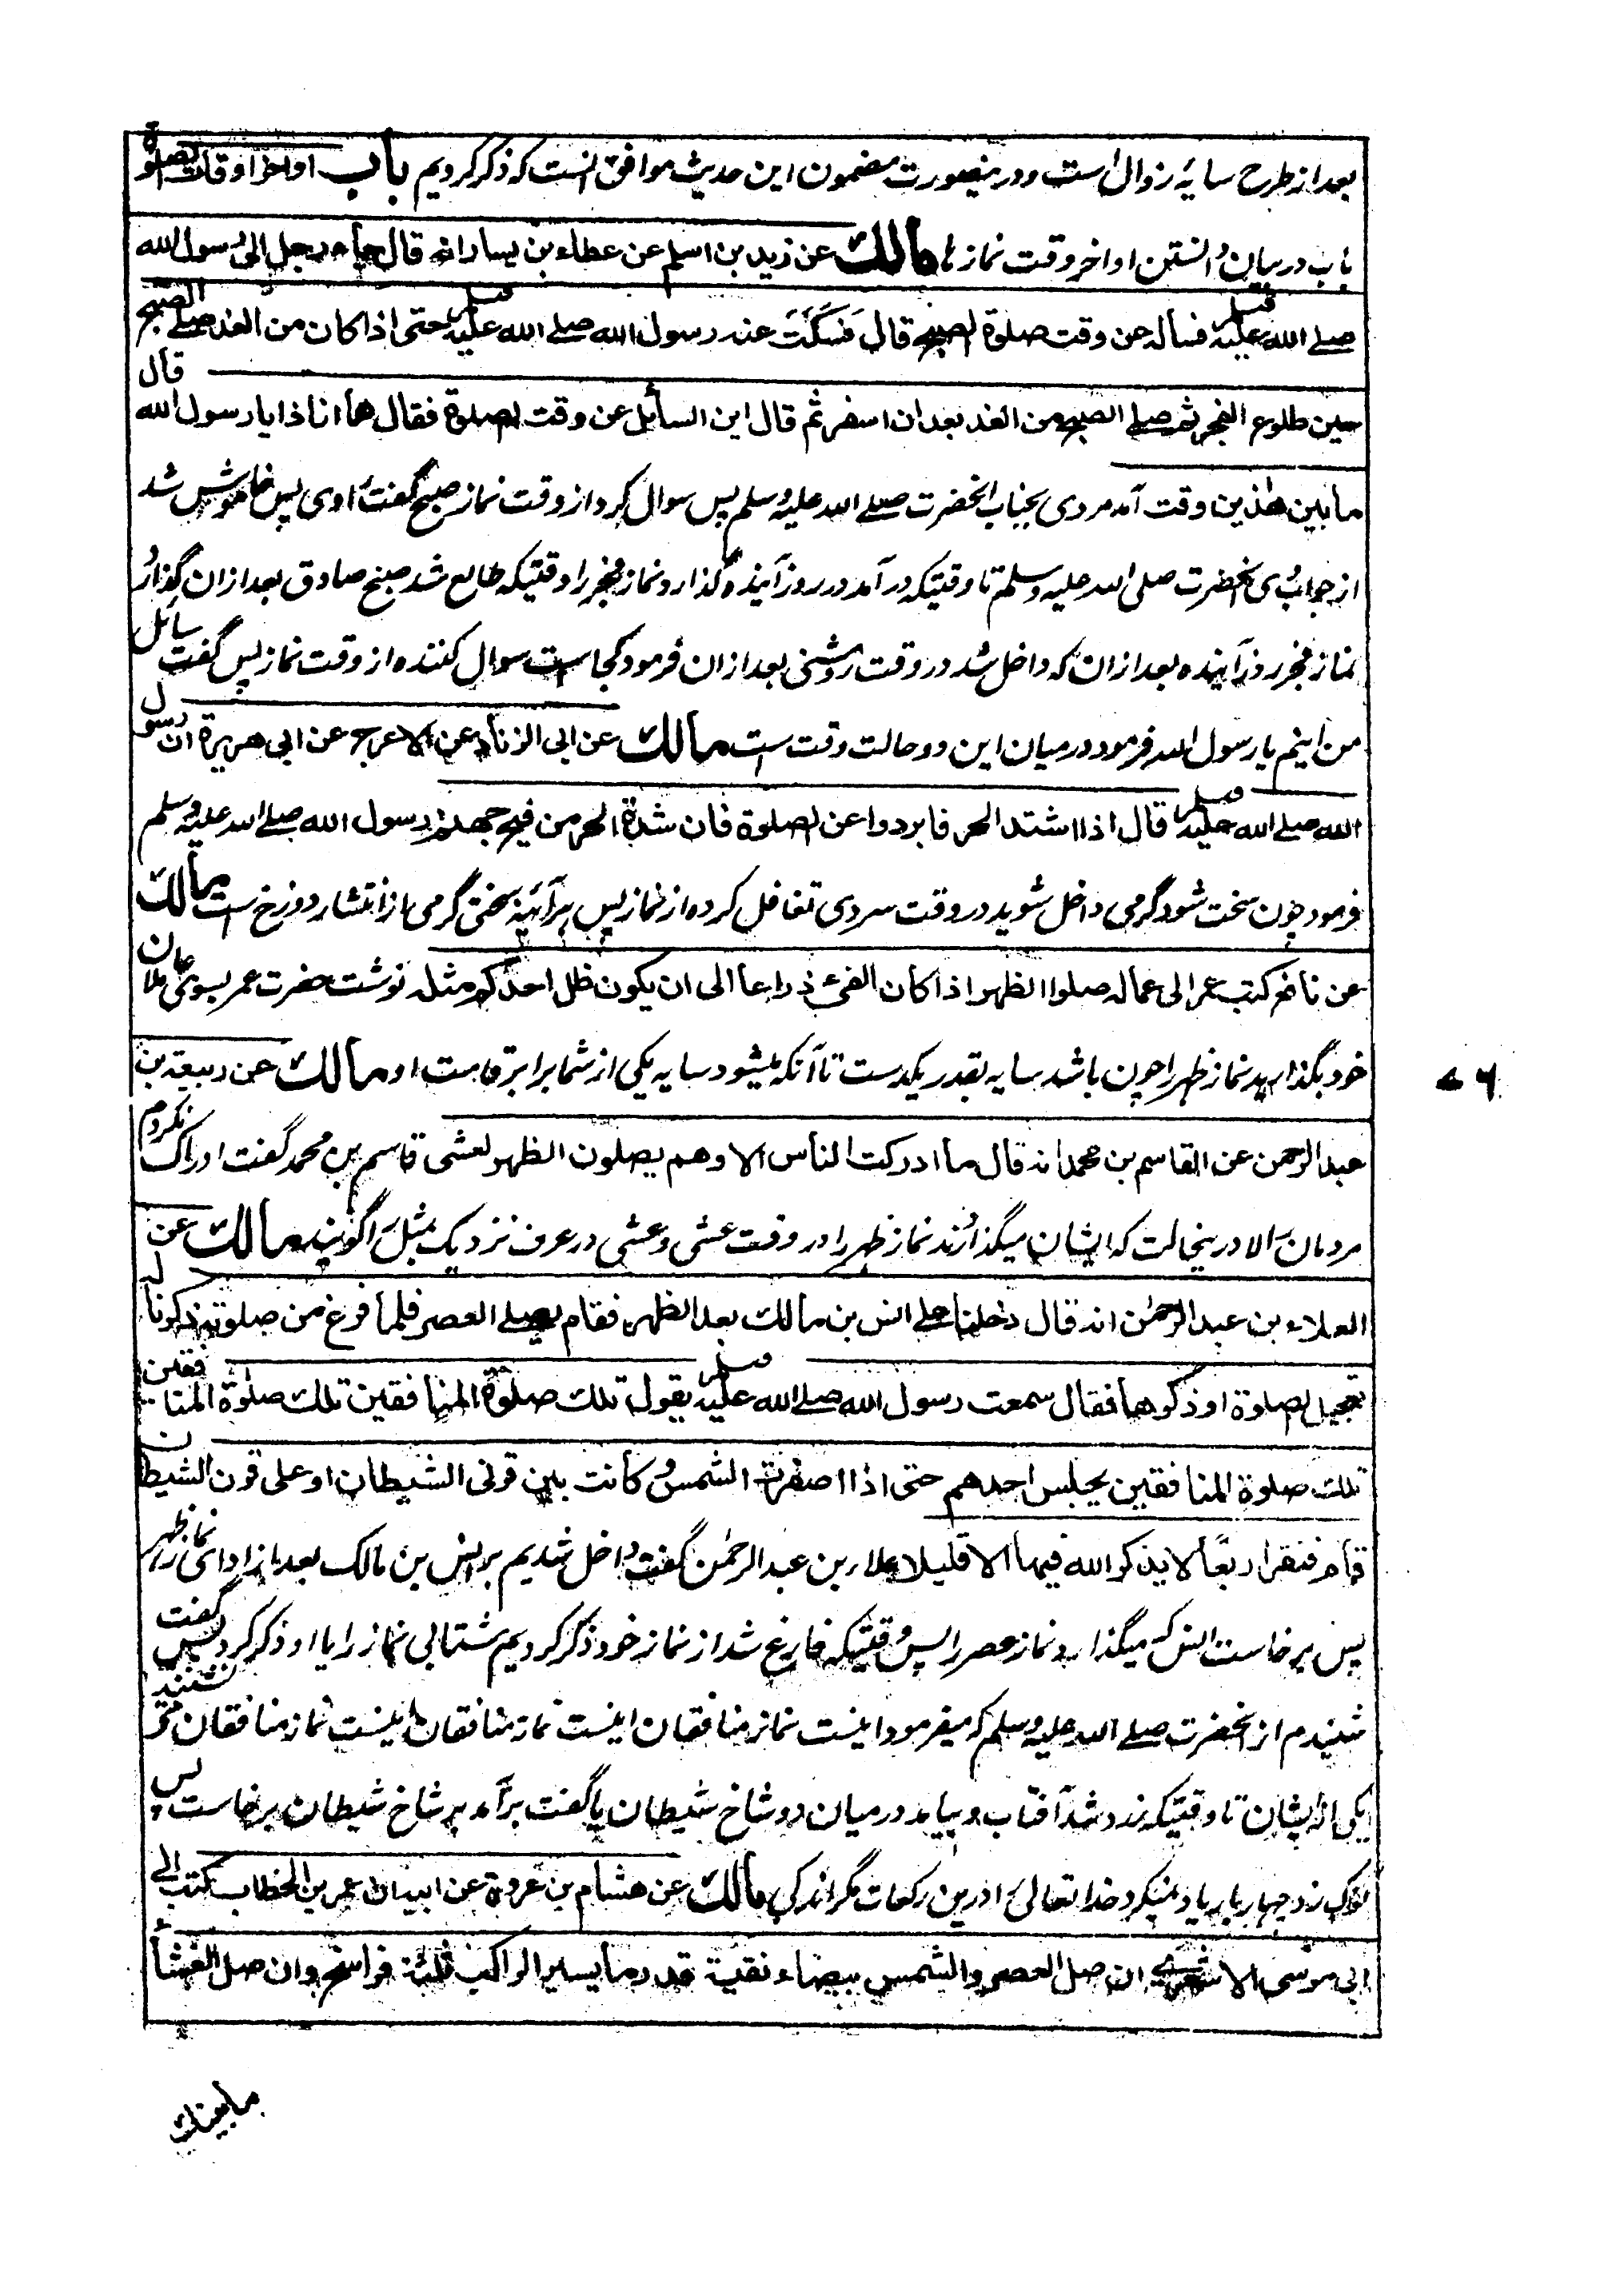 بعد از طرح سایهٔ زوال است و درینصورت مضمون این حدیث موافق آنست که ذکر کردیم باب اواخر اوقات الصلوة
باب در بیان دانستن اواخر وقت نمازها مالك عن زيد بن اسلم عن عطاء بن يسار انه قال جاء رجل الى رسول الله
صلے الله عليه وسلم فسأله عن وقت صلوة الصبح قال فَسَكَتَ عنه رسول الله صلے الله عليه وسلم حتى اذا كان من الغد صلے الصبح
حين طلوع الفجر ثم صلے الصبح من الغد بعد ان اسفر ثم قال اين السائل عن وقت الصلوة فقال ها انا ذا يا رسول الله قال
ما بين هذين وقت آمد مردی بجناب آنحضرت صلے الله علیه وسلم پس سوال کرد از وقت نماز صبح گفت راوی پس خاموش شد
از جواب وی آنحضرت صلی الله علیه وسلم تا وقتیکه در آمد در روز آینده گذارد نماز فجر را وقتیکه طالع شد صبح صادق بعد ازان گذارد
نماز فجر روز آینده بعد ازان که داخل شد در وقت روشنی بعد ازان فرمود کجاست سوال کننده از وقت نماز پس گفت سائل
من اینم یا رسول الله فرمود درمیان این دو حالت وقت ست مالك عن ابى الزناد عن الاعرج عن ابى هريرة ان رسول
الله صلے الله عليه وسلم قال اذا اشتد الحر فابردوا عن الصلوة فان شدة الحر من فيح جهنم رسول الله صلے الله علیه وسلم
فرمود چون سخت شود گرمی داخل شوید در وقت سردی تغافل کرده از نماز پس هرآئینه سختی گرمی از انتشار دوزخ ست مالك
عن نافع كتب عمر الى عماله صلوا الظهر اذا كان الفئ ذراعا الى ان يكون ظل احدكم مثله نوشت حضرت عمر بسوی عاملان
خود بگذارید نماز ظهر را چون باشد سایه بقدر یکدست تا آنکه میشود سایه یکی از شما برابر قامت او مالك عن ربيعة بن
عبد الرحمن عن القاسم بن محمد انه قال ما ادركت الناس الا وهم يصلون الظهر بعشى قاسم بن محمد گفت ادراک نکردم
مردمان را الا درینحالت که ایشان میگذارند نماز ظهر را در وقت عشی و عشی در عرف نزدیک بمثل را گویند مالك عن
العلاء بن عبد الرحمن انه قال دخلنا على انس بن مالك بعد الظهر فقام يصلے العصر فلما فرغ من صلوته ذكرنا له
تعجيل الصلوة او ذكرها فقال سمعت رسول الله صلے الله عليه وسلم يقول تلك صلوة المنافقين تلك صلوة المنافقين
تلك صلوة المنافقين يجلس احدهم حتى اذا اصفرت الشمس وكانت بين قرنى الشيطان او على قرن الشيطان
قام فنقر اربعًا لا يذكر الله فيها الا قليلا علاء بن عبد الرحمن گفت داخل شدیم بر انس بن مالک بعد از ادای نماز ظهر
پس برخاست انس که میگذارد نماز عصر را پس وقتیکه فارغ شد از نماز خود ذکر کردیم شتابی نماز را یا او ذکر کرد پس گفت
شنیدم از آنحضرت صلے الله علیه وسلم که میفرمود اینست نماز منافقان اینست نماز منافقان اینست نماز منافقان می نشیند
یکی از ایشان تا وقتیکه زرد شد آفتاب و بیاید درمیان دو شاخ شیطان یا گفت برآمد بر شاخ شیطان برخاست پس
نوک زد چهار بار یاد نمیکرد خدا تعالی را درین رکعات مگر اندکی مالك عن هشام بن عروة عن ابيه ان عمر بن الخطاب كتب الى
ابى موسى الاشعرى ان صل العصر والشمس بيضاء نقية قدر ما يسير الراكب ثلثة فراسخ وان صل العشاء
ما بينك